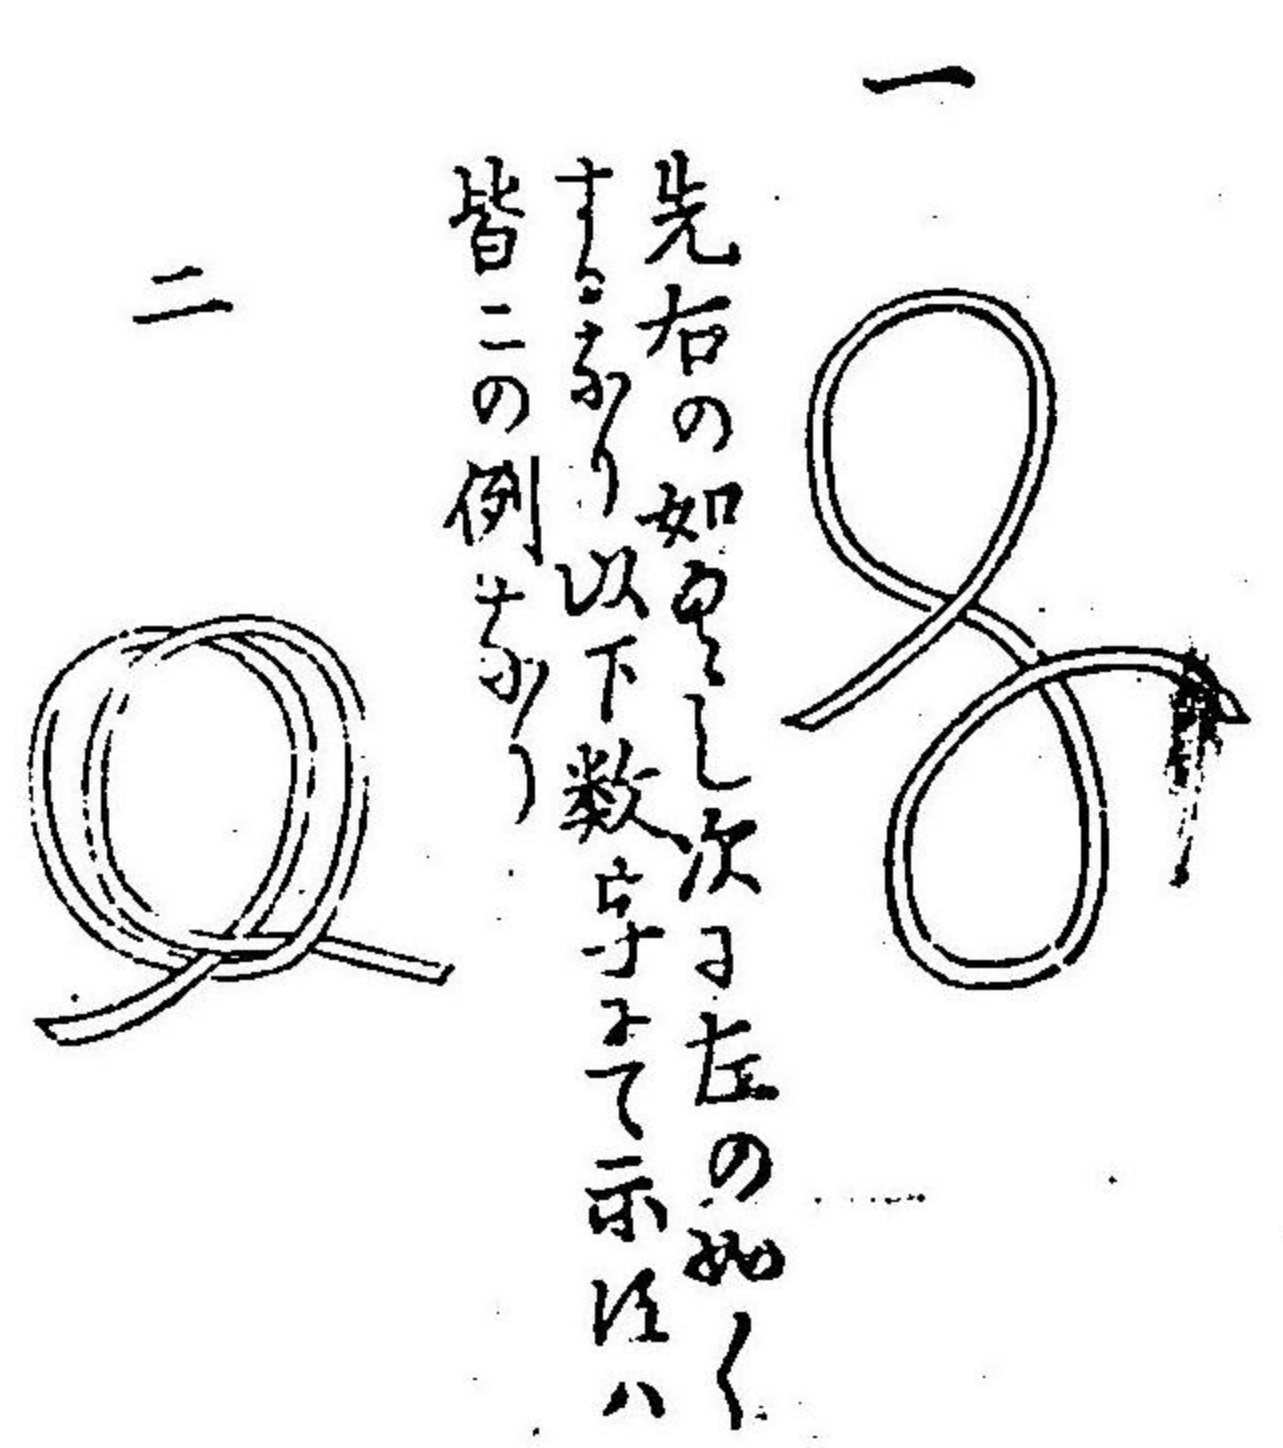 一
先右の如くし次に左の如く
するなり以下数字にて示ハ
皆この例なり
二